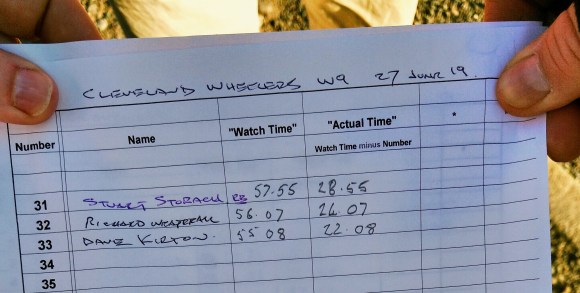 CLEVELAND WHEELERS W9 27 JUNE 19
Number Name "Watch Time" "Actual Time" *
Watch Time minus Number
31 STUART RB 57.55 26.55
32 RICHARD 56.07 24.07
33 DAVE KIRTON. 55 08 22.08
34
35